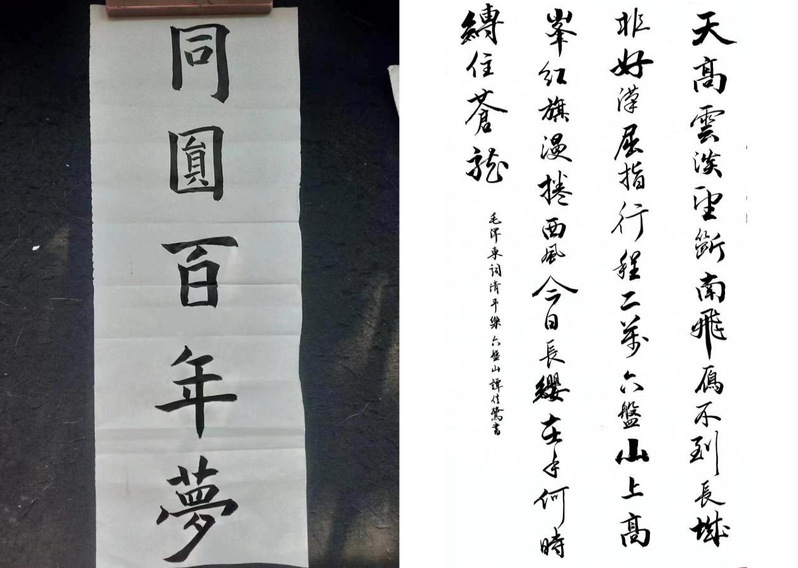 同圓百年夢
天高雲淡望斷南飛鴈不到長城
非好漢屈指行程二萬六盤山上高
峯紅旗漫捲西風今日長纓在手何時
縛住蒼龍
毛澤東詞清平樂六盤山譚書